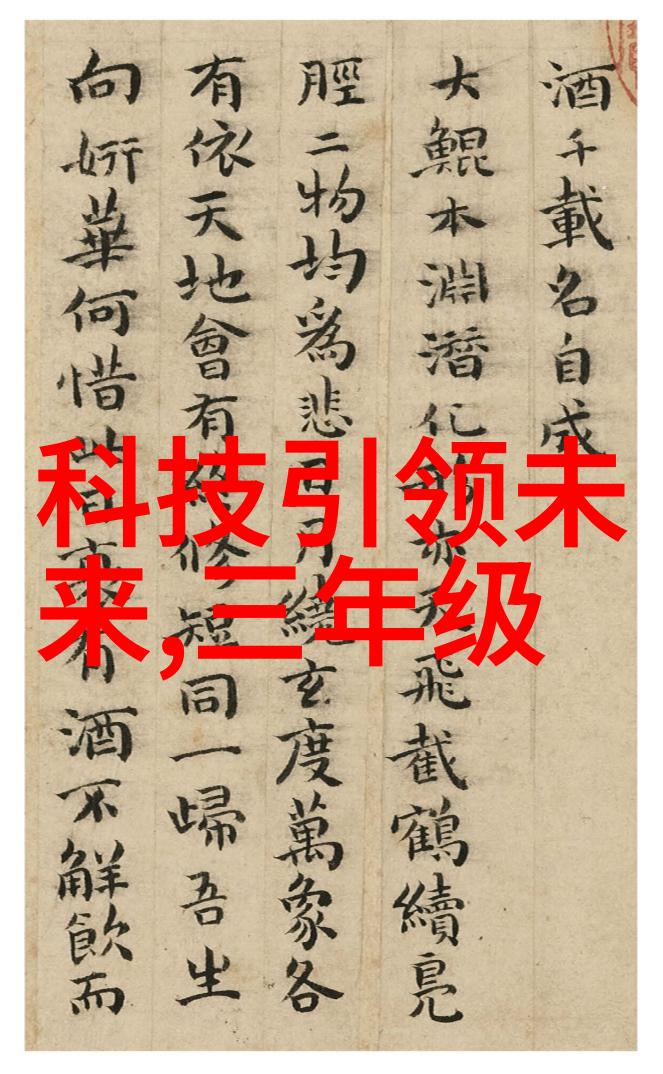 科技引领未
来,三年级
酒千載名自成
大鯤本淵潛化亦天飛截鶴續鳧
脛二物均爲悲日月繞玄度萬象各
有依天地會有終修短同一歸吾生
向妍華何惜此日有酒不解飲而